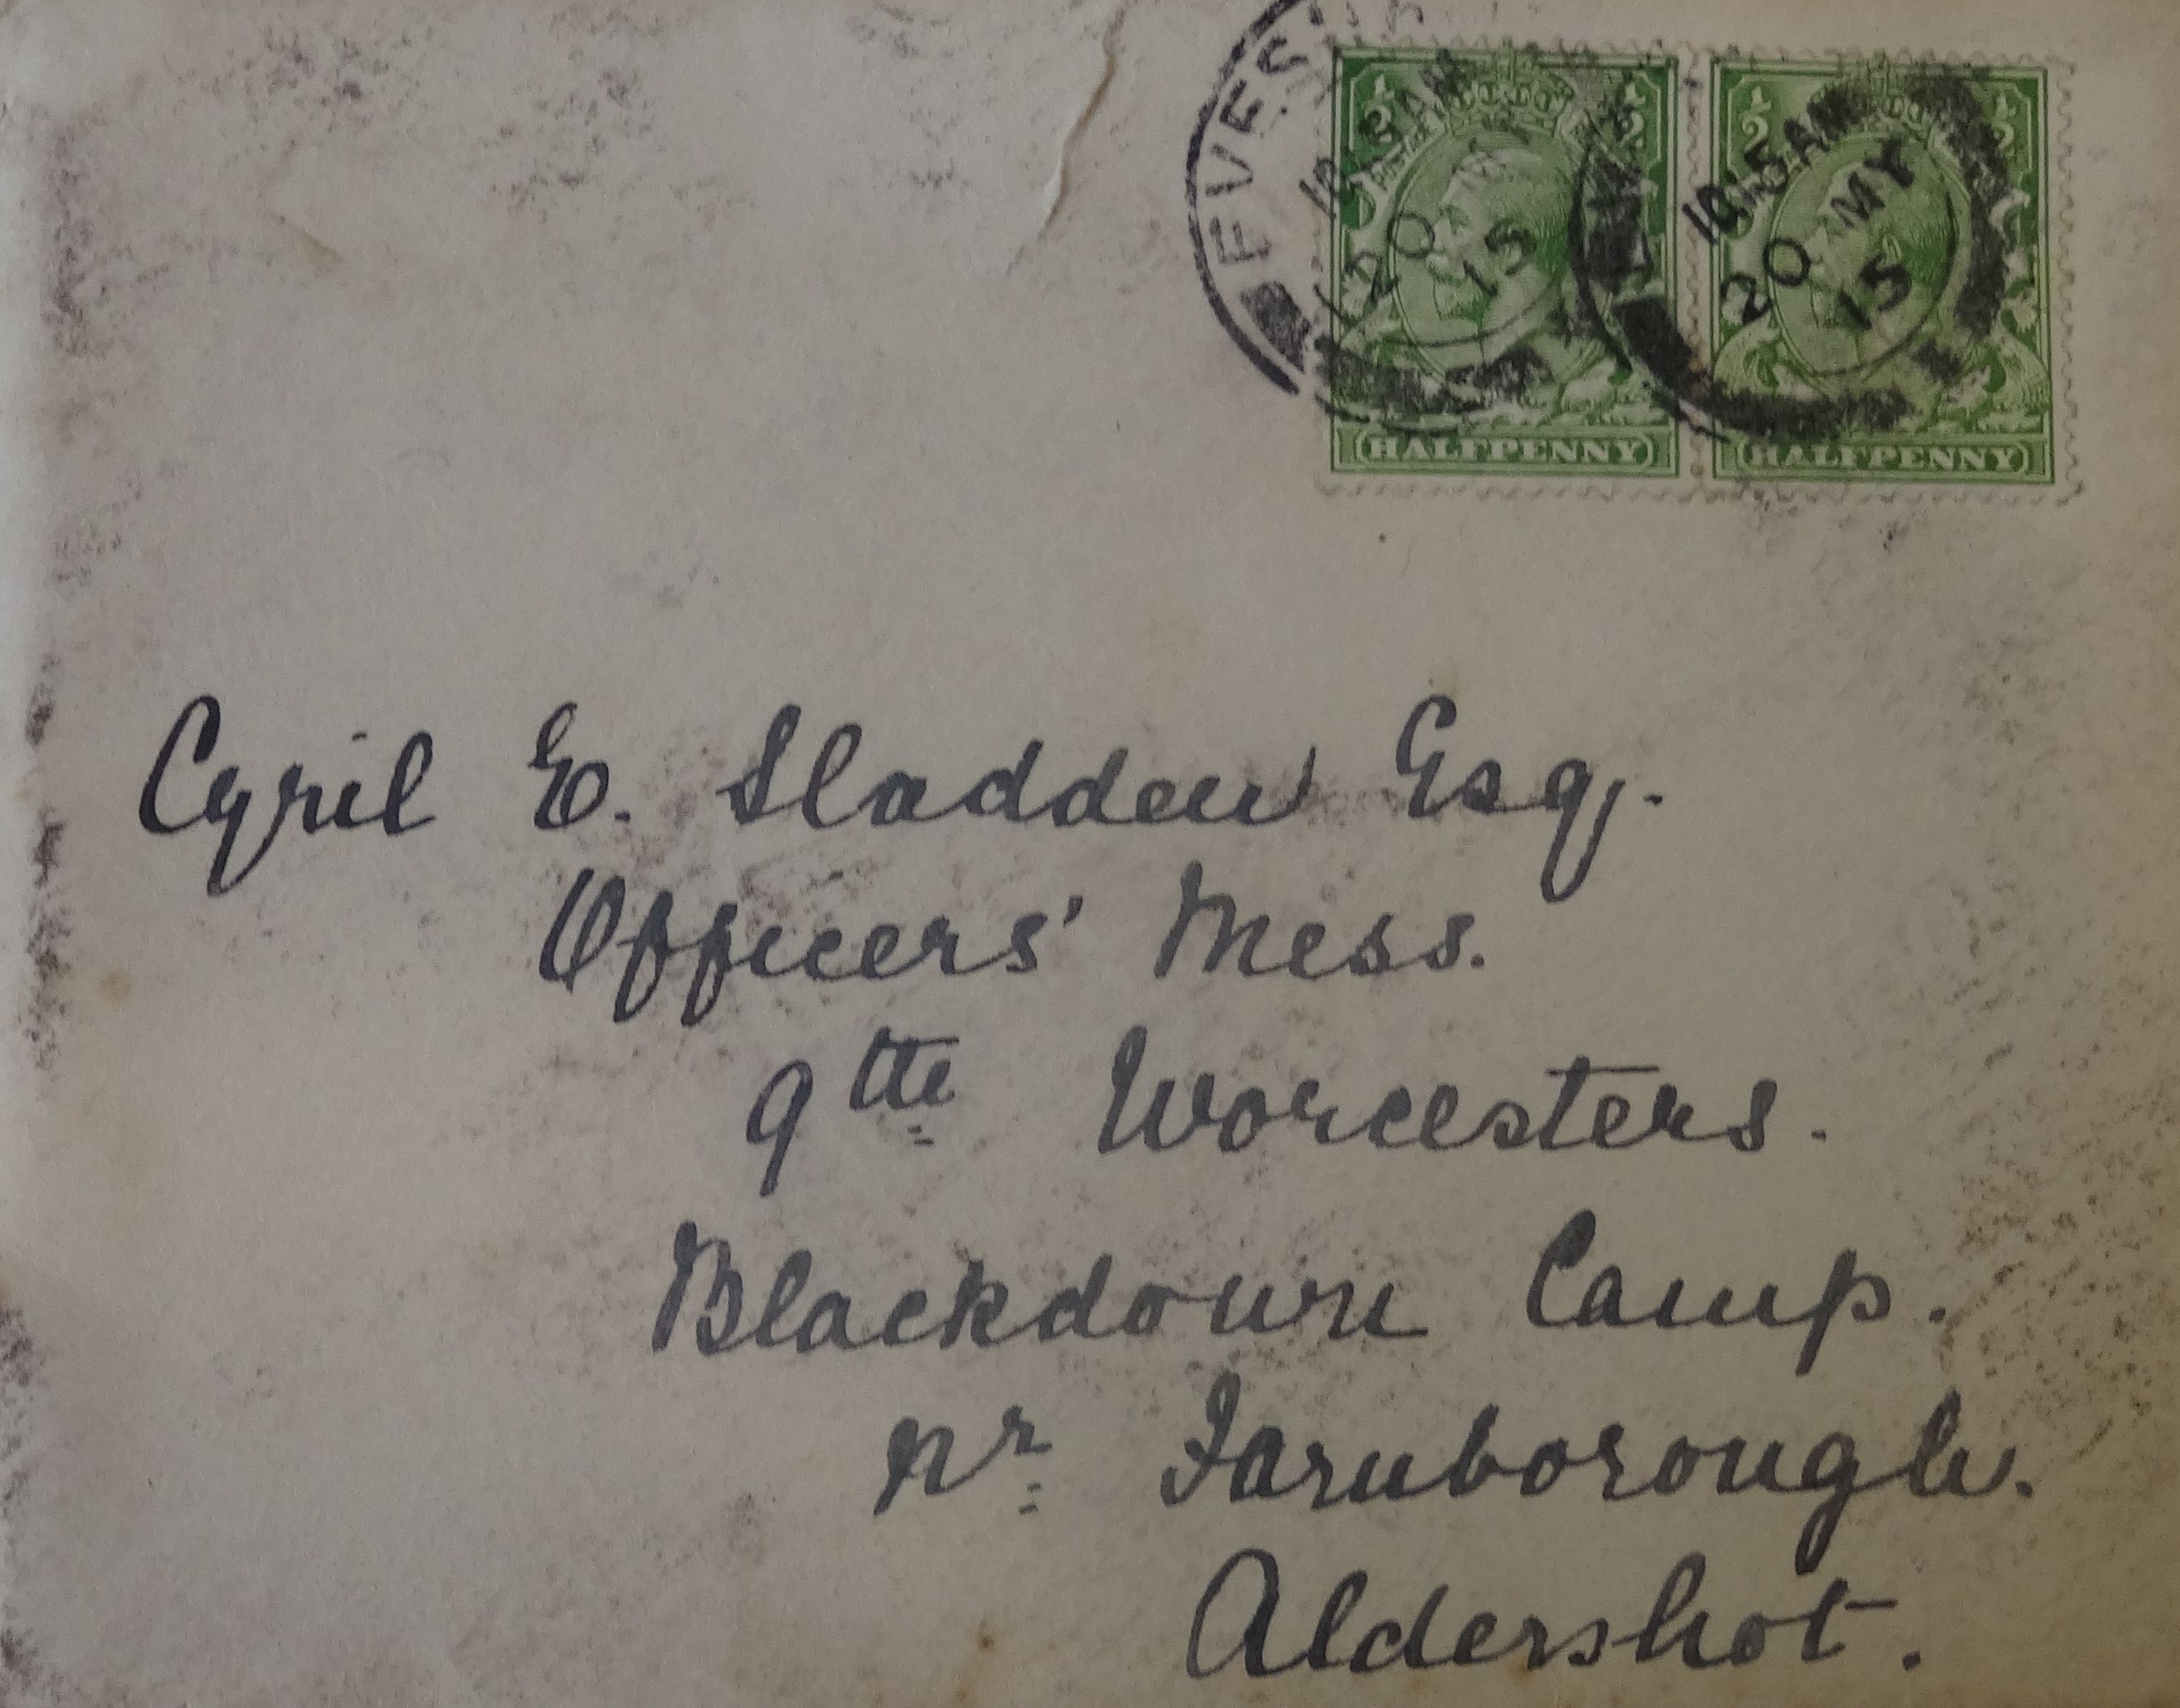 EVES
10.15 AM
20 MY
15
10.15 AM
20 MY
15
HALFPENNY
HALFPENNY
Cyril E. Sladden Esq.
Officers' Mess.
9th Worcesters.
Blackdown Camp.
nr Farnborough.
Aldershot.